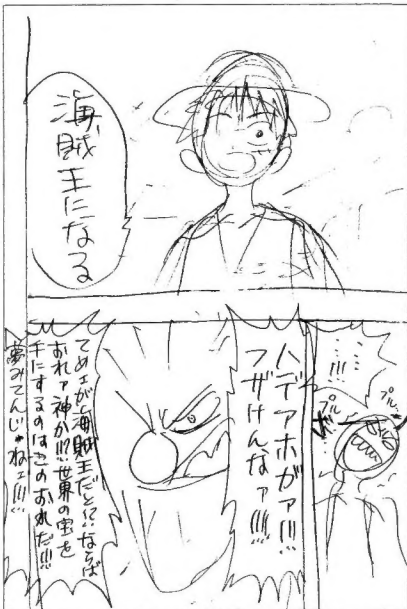 海賊王になる
…!!!
プル
プル
ハデアホがァ!!!
フザけんなァ!!!
てめェが海賊王だと!?ならば
おれァ神か!!!世界の宝を
手にするのはこのおれだ!!!
夢みてんじゃねェ!!!